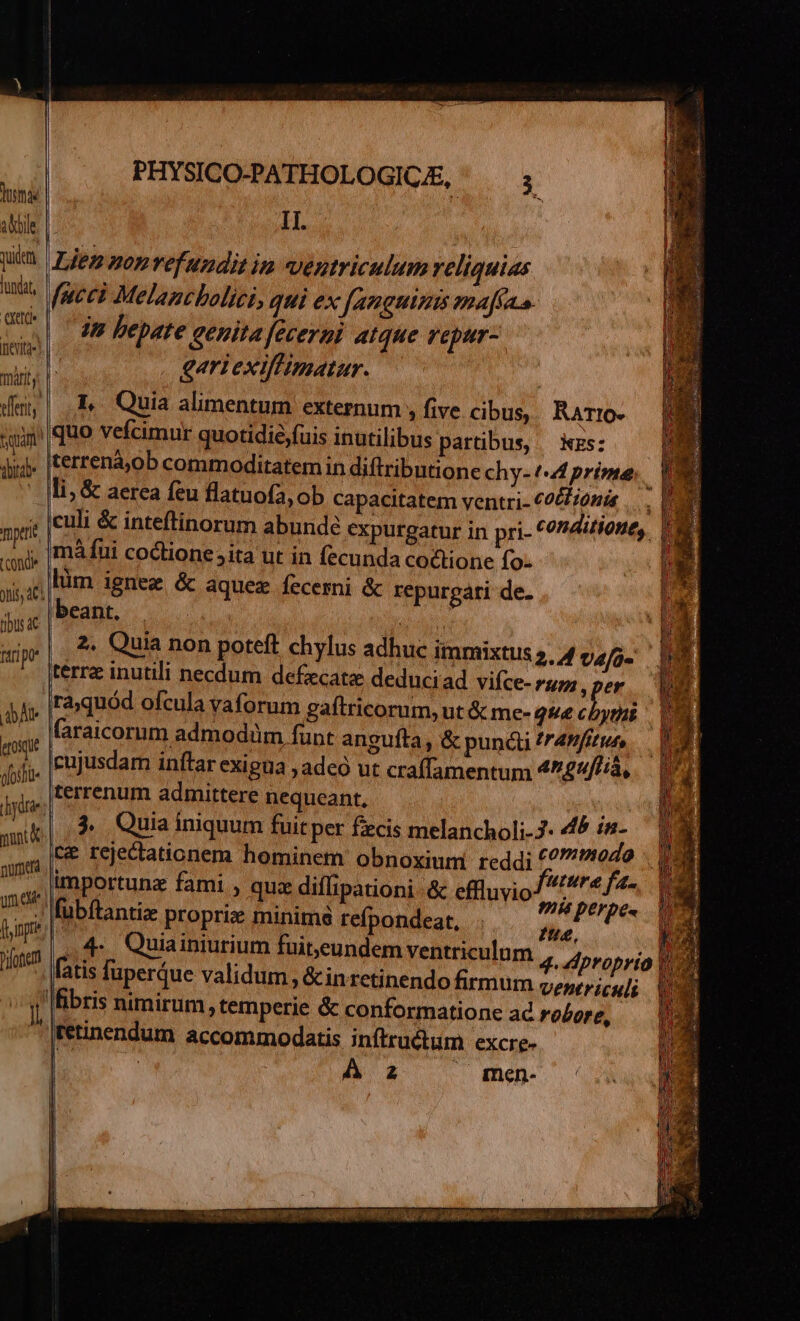 PHYSICO-PATHOLOGICÆ, 3
II.
Lien non refundit in ventriculum reliquias
succi Melancholici, qui ex sanguinis massa
in hepate genita secerni atque repur-
gari existimatur.
1, Quia alimentum externum, sive cibus, RATIO-
quo vescimur quotidie, suis inutilibus partibus, NES:
terrenâ, ob commoditatem in distributione chy- 1. A prima
li, & aerea seu flatuosa, ob capacitatem ventri- coctionis
culi & intestinorum abundè expurgatur in pri- conditione,
mâ sui coctione, ita ut in secunda coctione so-
lùm igneæ & aqueæ secerni & repurgari de-
beant.
2. Quia non potest chylus adhuc immixtus 2. A vaso-
terræ inutili necdum defæcatæ deduci ad visce- rum, per
ra, quód oscula vasorum gastricorum, ut & me- quæ chymi
saraicorum admodùm sunt angusta, & puncti transitus,
cujusdam instar exigua, adeò ut crassamentum angustiâ,
terrenum admittere nequeant.
3. Quia iniquum fuit per fæcis melancholi- 3. Ab in-
cæ rejectationem hominem obnoxium reddi commodo
importunæ fami, quæ dissipationi & effluvio futuræ fa-
substantiæ propriæ minimè respondeat. mis perpe-
tuæ,
4. Quia iniurium fuit, eundem ventriculum 4. A proprio
satis superque validum, & in retinendo firmum ventriculi
fibris nimirum, temperie & conformatione ad robore,
retinendum accommodatis instructum excre-
A 2 men-